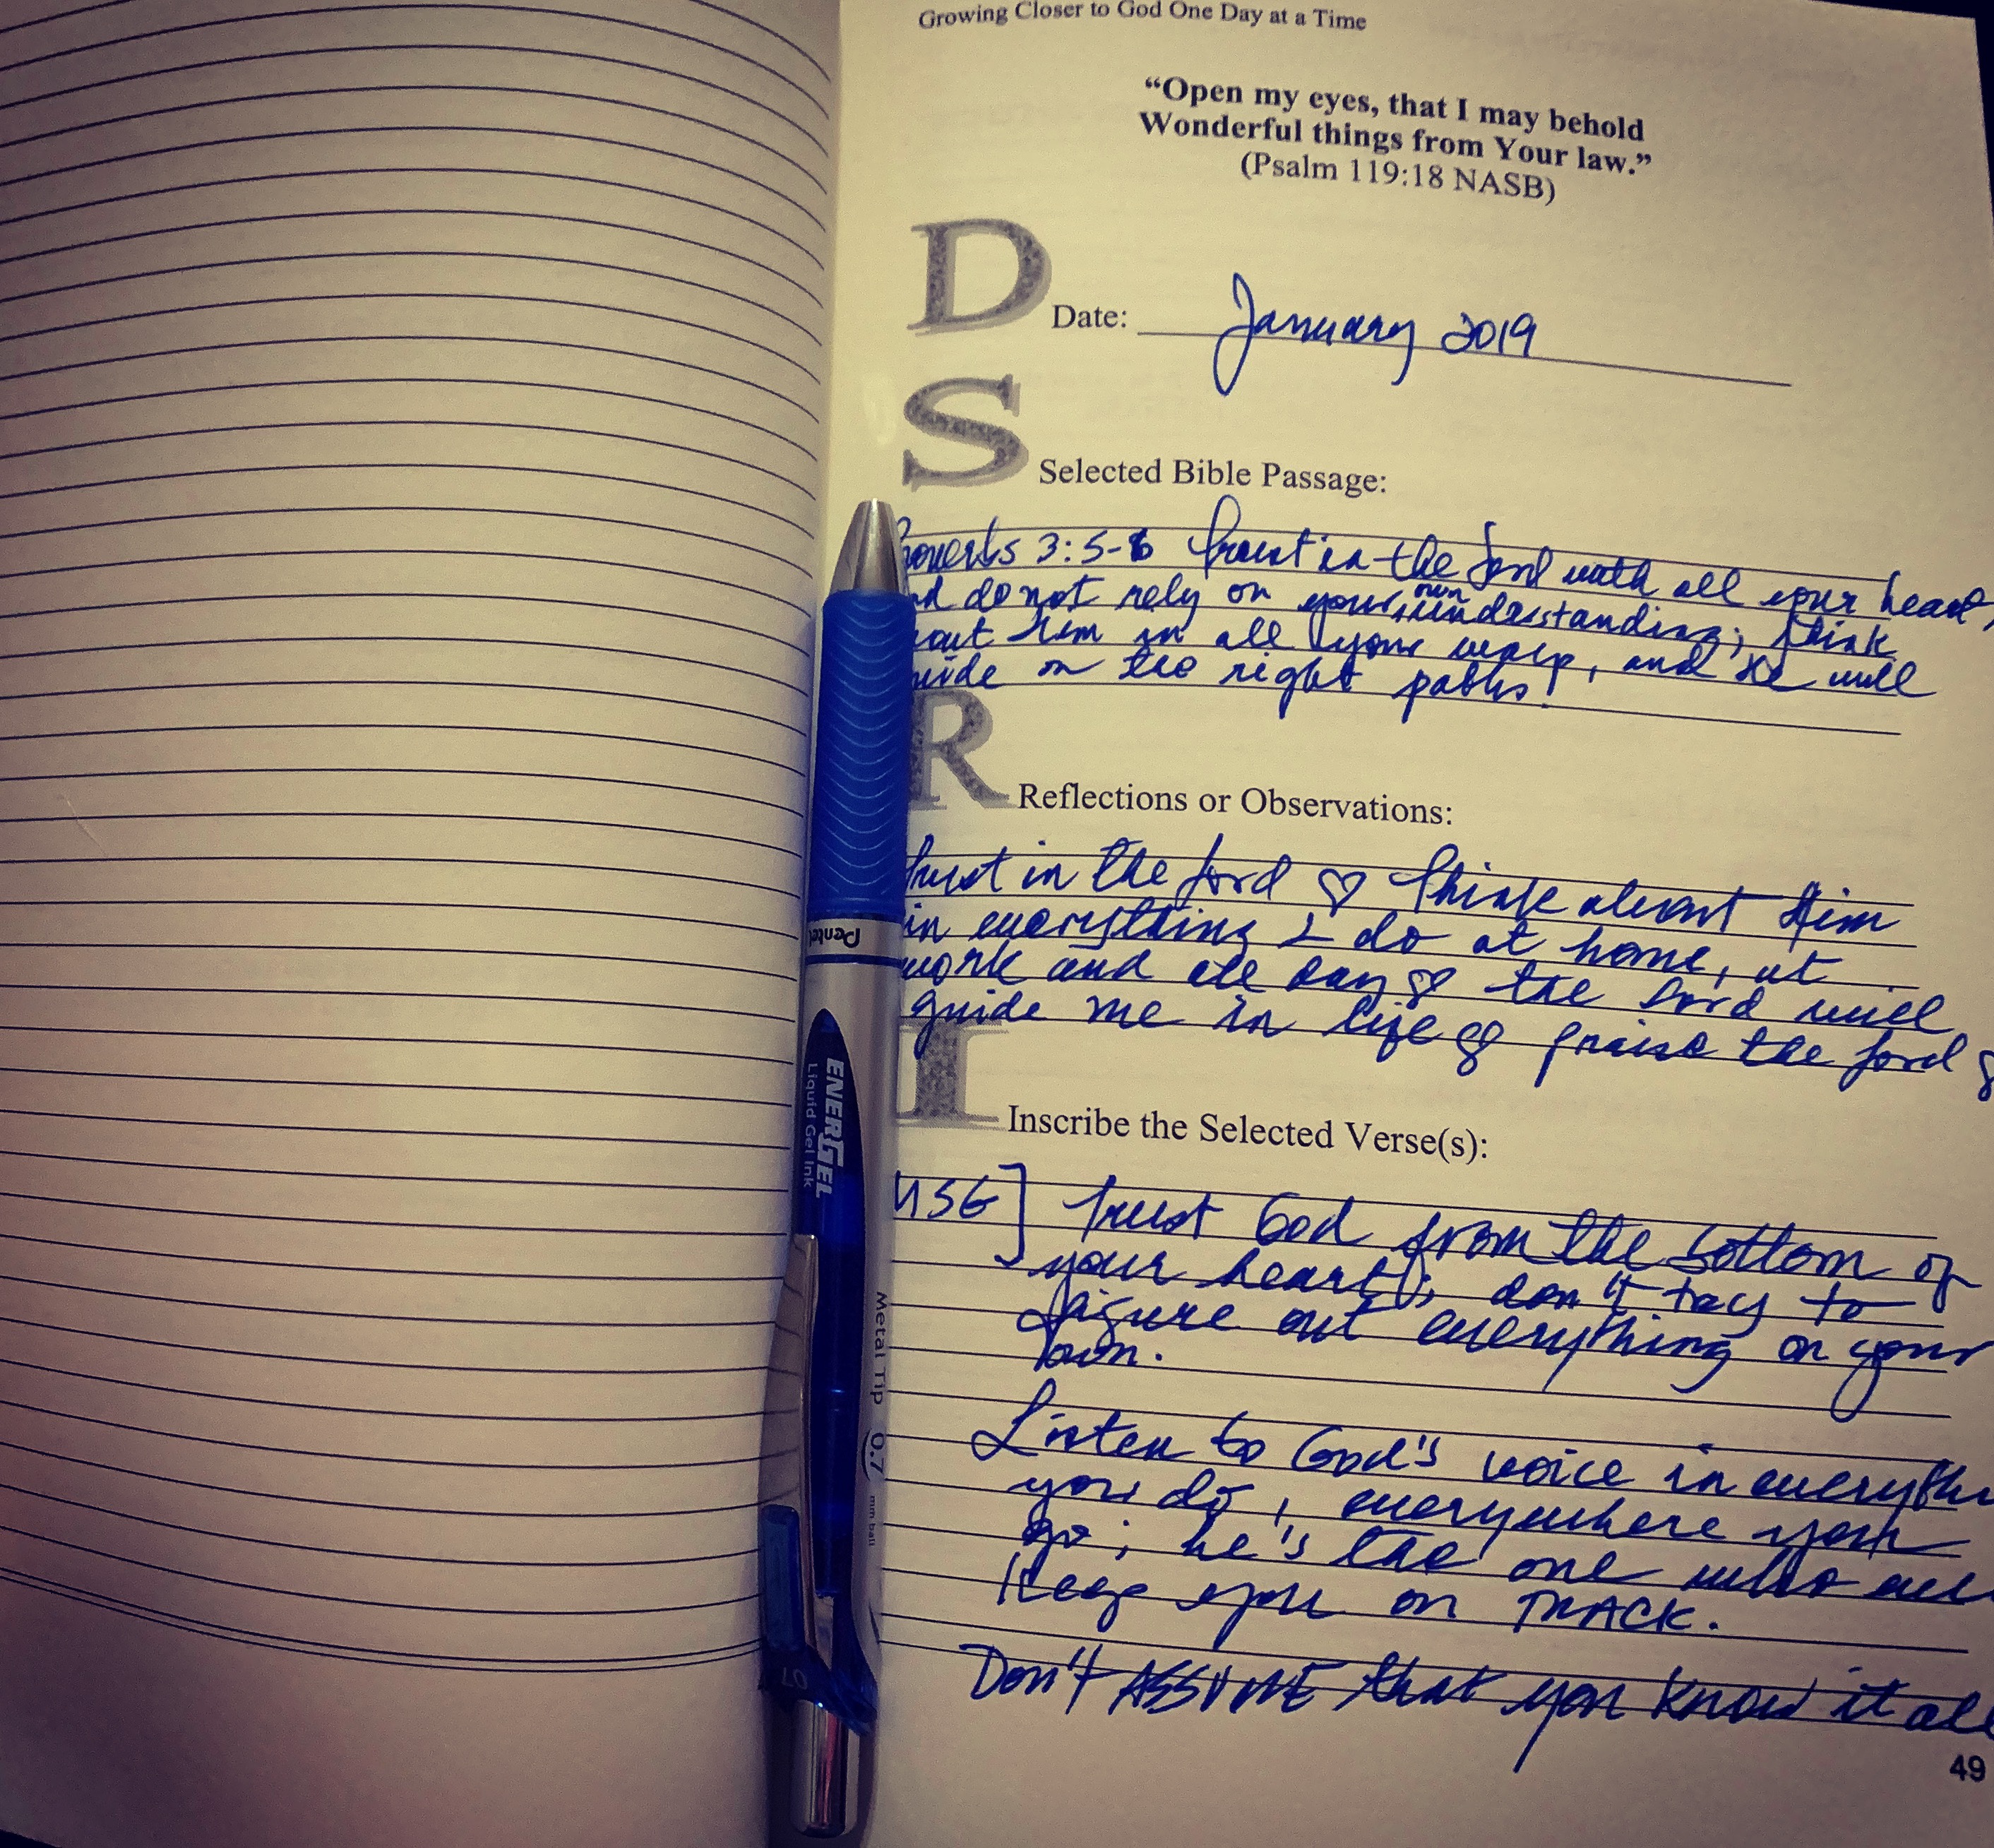 Growing Closer to God One Day at a Time
“Open my eyes, that I may behold
Wonderful things from Your law.”
(Psalm 119:18 NASB)
D
Date: January 2019
S
Selected Bible Passage:
roverbs 3:5-6 Trust in the Lord with all your heart,
nd do not rely on your own understanding; think
out Him in all your ways, and He will
uide on the right paths!
R
Reflections or Observations:
Trust in the Lord ♡ Think about Him
in everything I do at home, at
work and all day ♡ the Lord will
guide me in life ♡ praise the Lord ♡
I
Inscribe the Selected Verse(s):
MSG] Trust God from the bottom of
your heart; don't try to
figure out everything on your
own.
Listen to God's voice in everythi
you do, everywhere you
go; he's the one who wi
keep you on TRACK.
Don't ASSUME that you know it all
49
Pentel
ENERGEL
Liquid Gel Ink
Metal Tip 0.7 mm ball
07